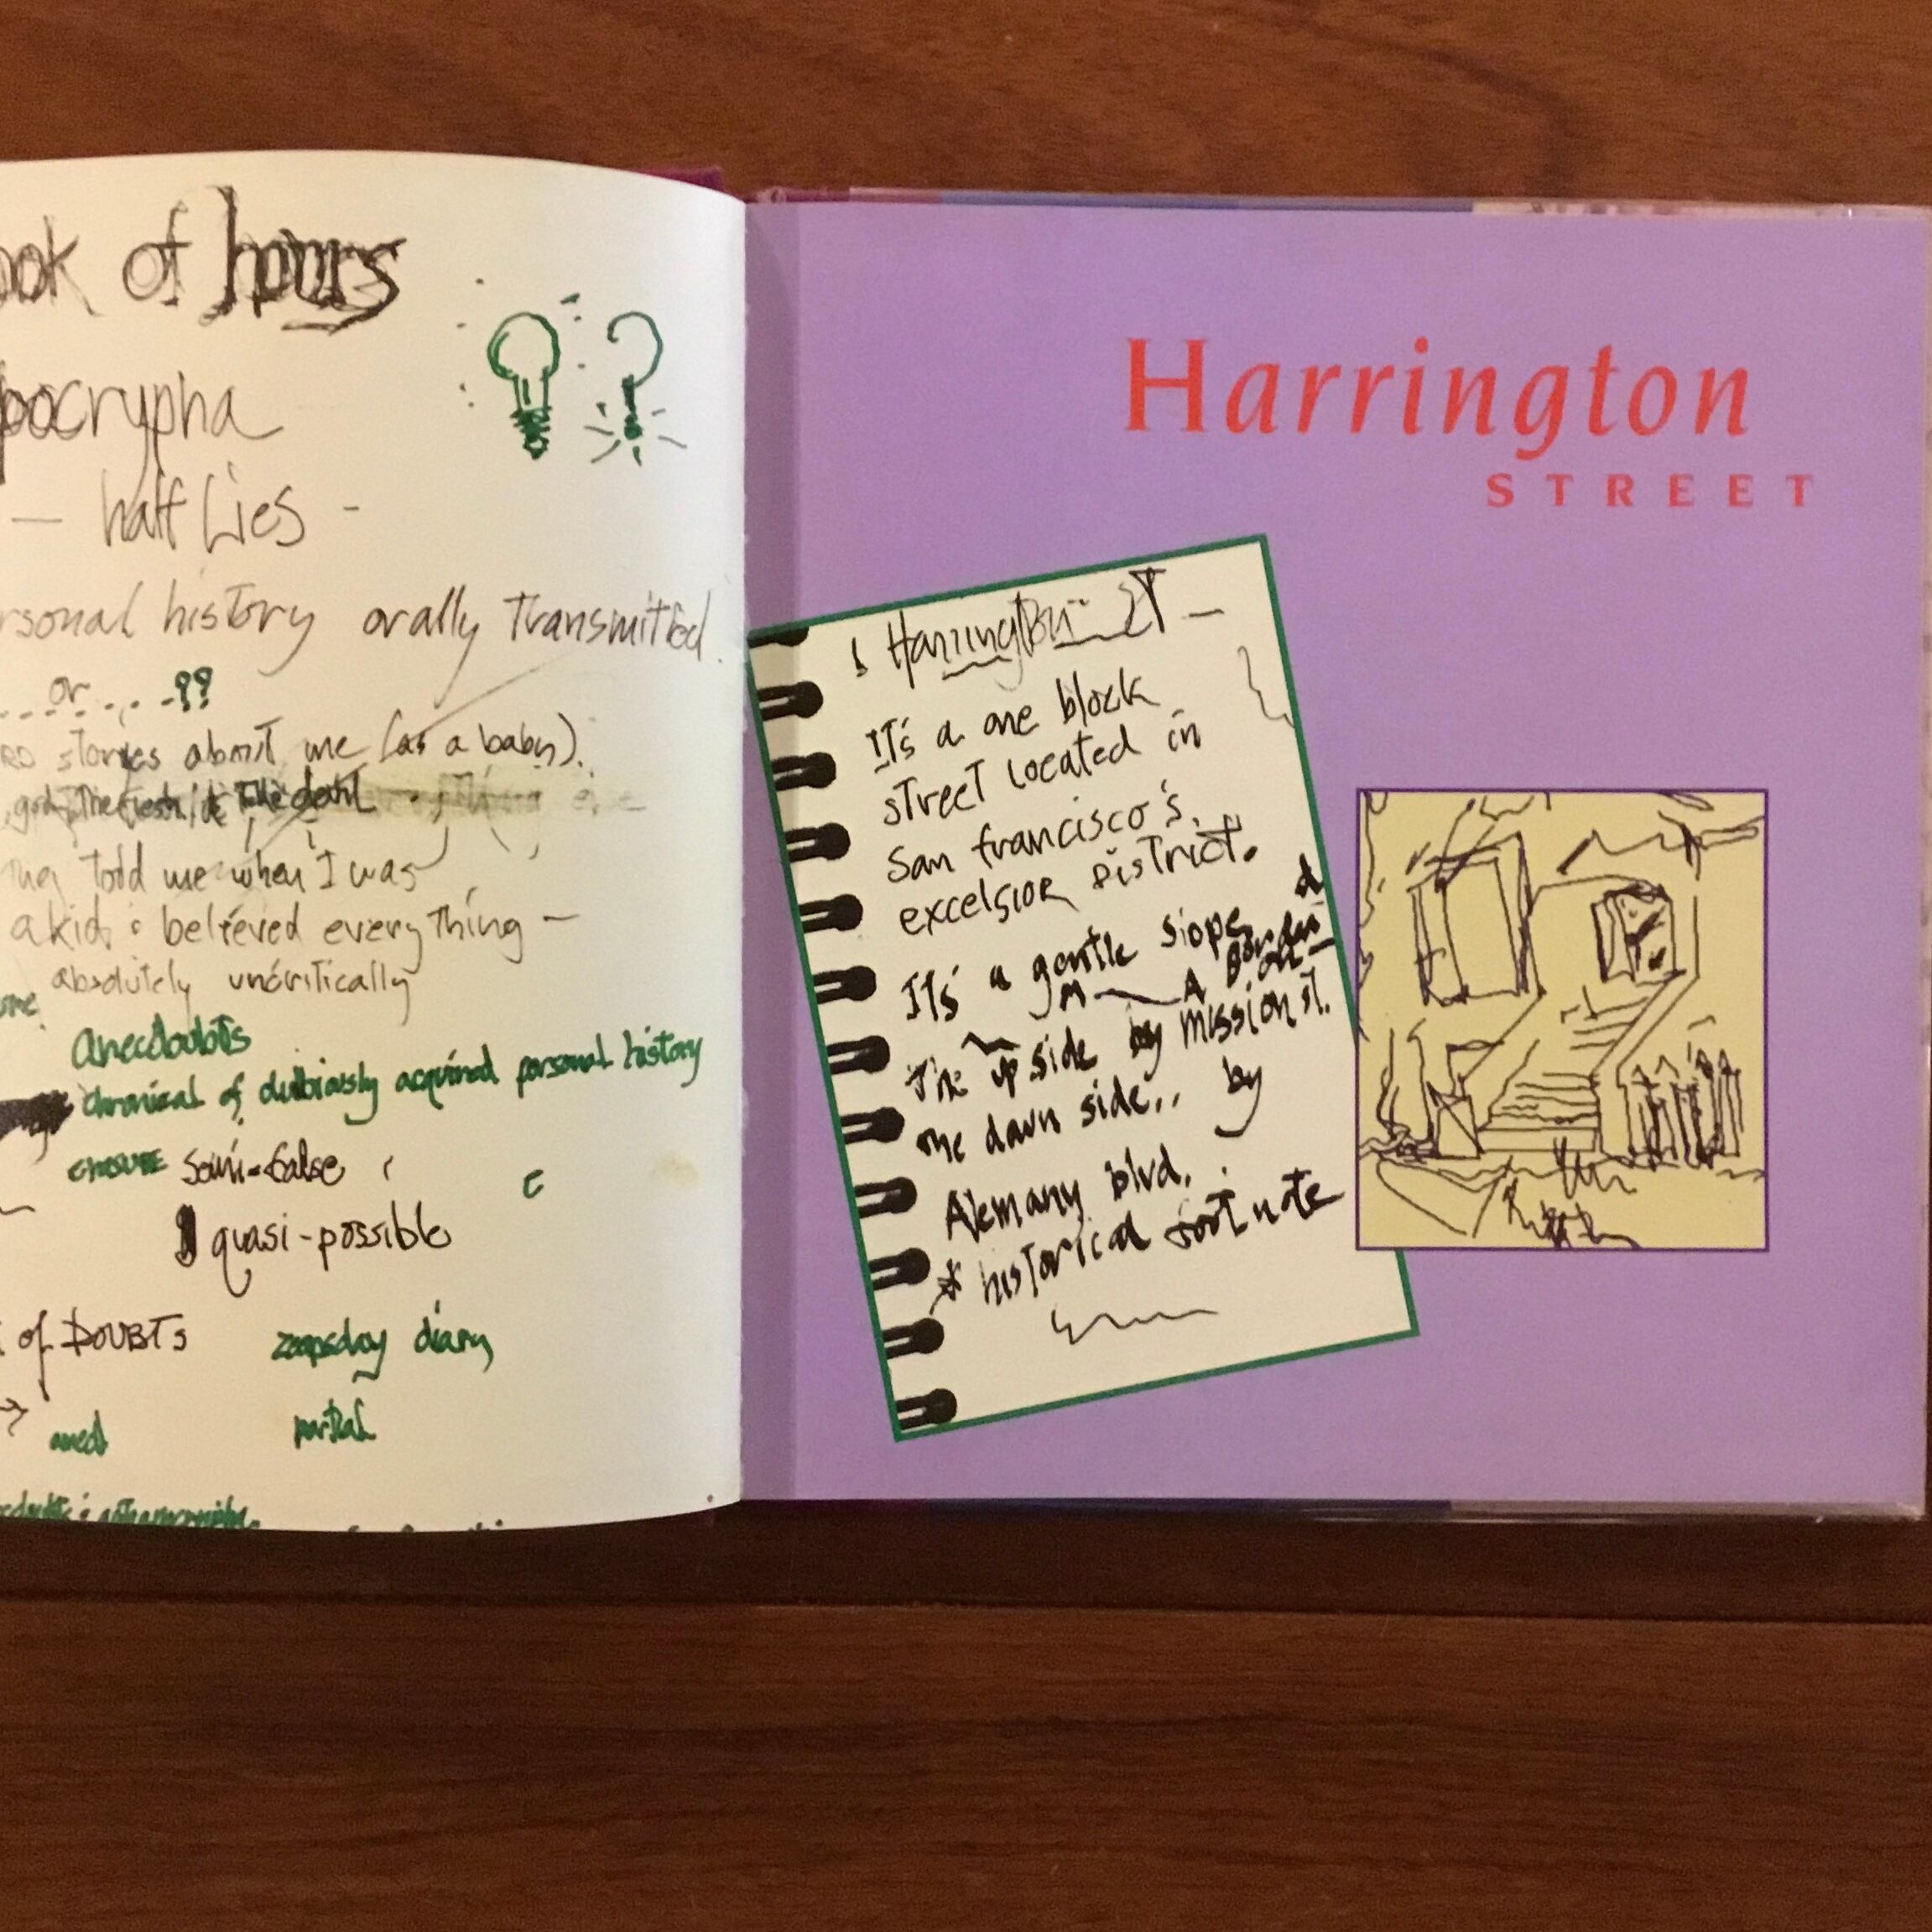 ook of hours
pocrypha
— half Lies -
rsonal history orally Transmitted.
or ... -??
stories about me (as a baby).
The devil
They Told me when I was
a kid. i believed everything —
absolutely uncritically
anecdoubts
chronical of dubiously acquired personal history
semi-false
quasi-possible
of DOUBTs
diary
anecd
partial
Harrington
STREET
Harrington ST —
IT's a one block
street located in
San francisco's,
excelsior District.
IT's a gentle slope,
The up side by mission st.
the down side.. by
Alemany blvd.
* historical footnote